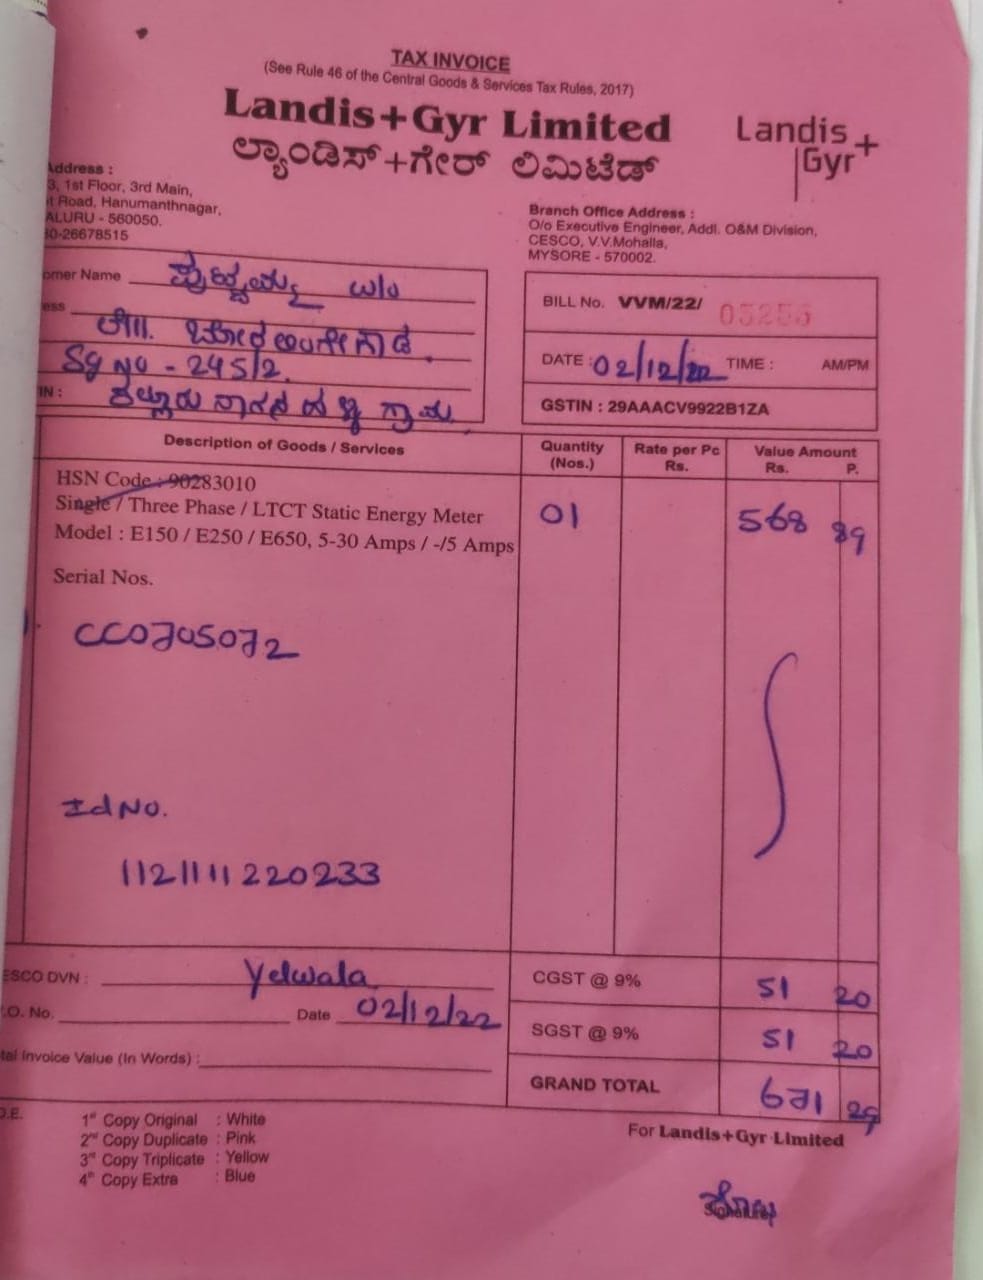 TAX INVOICE
(See Rule 46 of the Central Goods & Services Tax Rules, 2017)
Landis+Gyr Limited
ಲ್ಯಾಂಡಿಸ್+ಗೇರ್ ಲಿಮಿಟೆಡ್
Landis+
Gyr
Address :
3, 1st Floor, 3rd Main,
t Road, Hanumanthnagar,
ALURU - 560050.
0-26678515
Branch Office Address :
O/o Executive Engineer, Addl. O&M Division,
CESCO, V.V.Mohalla,
MYSORE - 570002.
omer Name W/o
ess
Sy No - 245/2.
IN : ಗ್ರಾಮ
BILL No. VVM/22/ 05255
DATE : 02/12/22 TIME : AM/PM
GSTIN : 29AAACV9922B1ZA
Description of Goods / Services Quantity (Nos.) Rate per Pc Rs. Value Amount Rs. P.
HSN Code : 90283010
Single / Three Phase / LTCT Static Energy Meter 01 568 89
Model : E150 / E250 / E650, 5-30 Amps / -/5 Amps
Serial Nos.
CC0705072
Id No.
1121111220233
ESCO DVN : Yelwala
.O. No. Date 02/12/22
tal Invoice Value (In Words) :
CGST @ 9% 51 20
SGST @ 9% 51 20
GRAND TOTAL 671 29
O.E.
1st Copy Original : White
2nd Copy Duplicate : Pink
3rd Copy Triplicate : Yellow
4th Copy Extra : Blue
For Landis+Gyr Limited